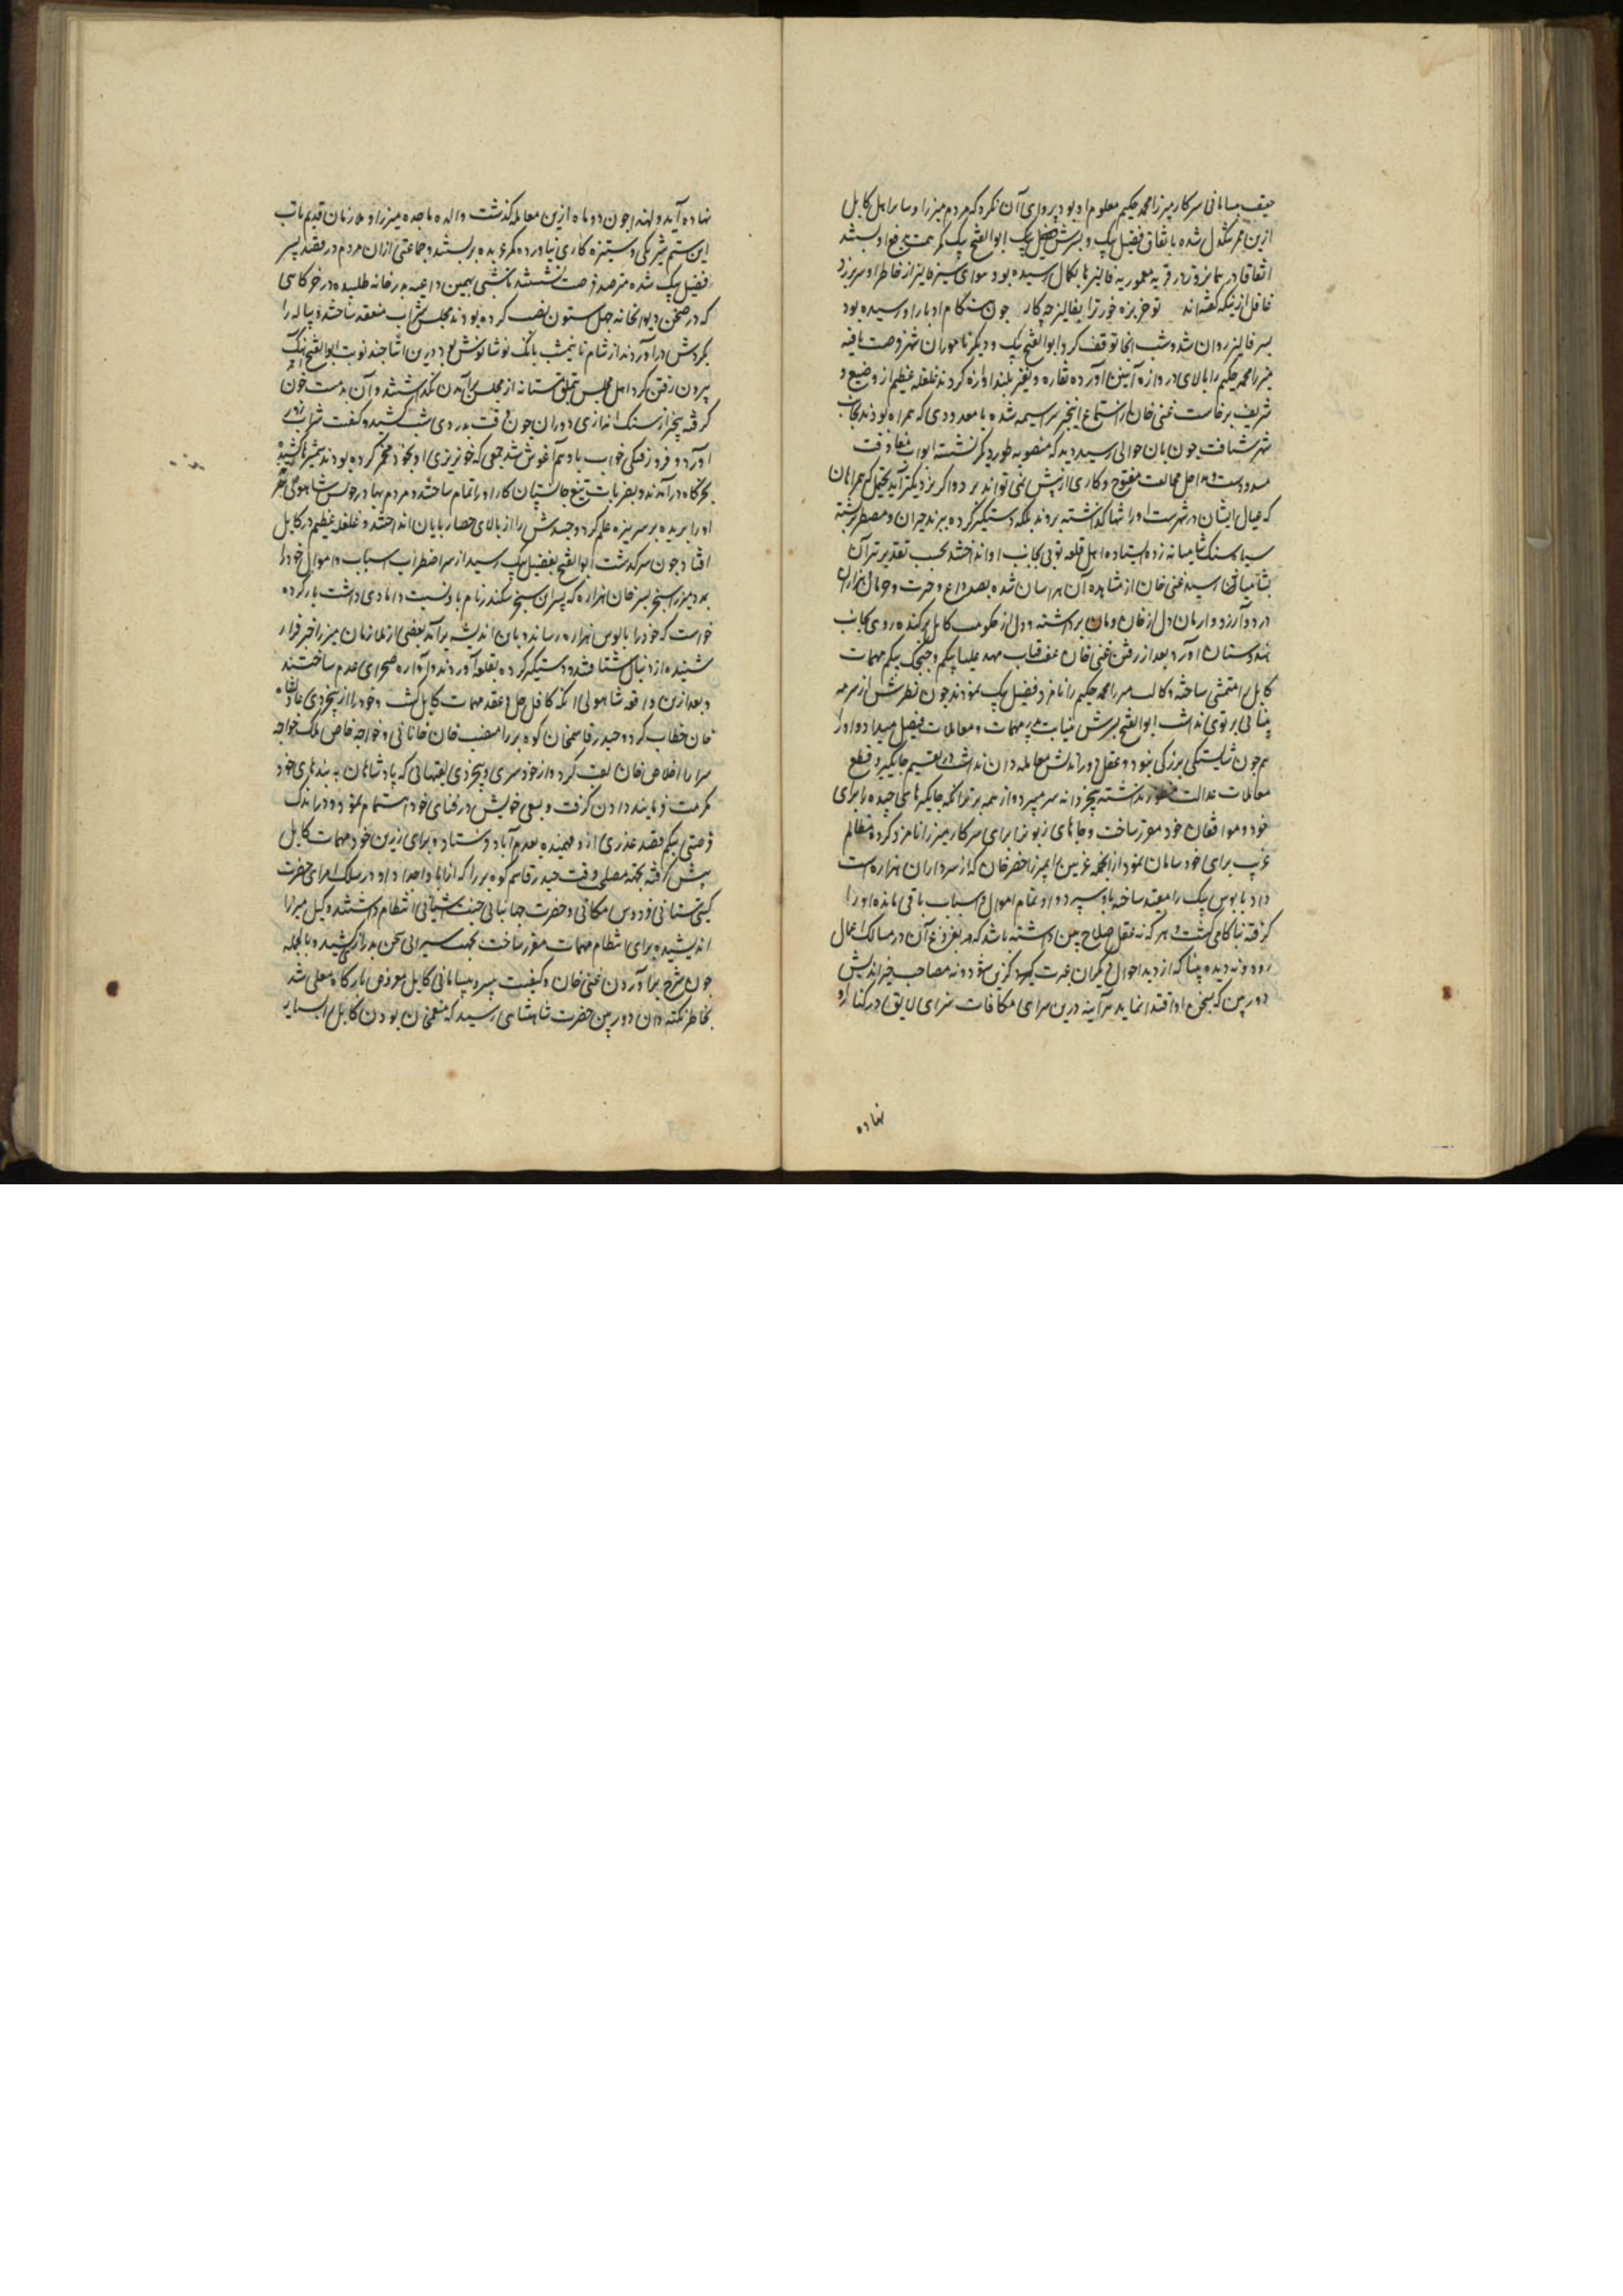 حیف بسامانی سرکار میرزا محمد حکیم معلوم او بود پروای آن نکرد که مردم میرزا و سایر اهل کابل
ازین ممر تنگدل شده باتفاق فضیل بیک و پسرش ابوالفتح بیک کمر همت برفع او بستند
اتفاقا در بهار در قریه معموریه فالیزها بکمال رسیده بود هوای سیر فالیز از خاطر او سر برزد
غافل ازینکه گفته‌اند تو خربزه خور ترا بفالیز چه کار چون هنگام ادبار او رسیده بود
بسیر فالیز روان شد و شب آنجا توقف کرد ابوالفتح بیک و دیگر نامداران شهر فرصت یافته
میرزا محمد حکیم را بالای دروازه آهنین آورده نقاره و نفیر بلندآوازه کردند غلغله عظیم از وضیع و
شریف برخاست غنی خان از استماع اینخبر سراسیمه شده با معدودی که همراه بودند بجانب
شهر شتافت چون بآن حوالی رسید دید که منصوبه طور دیگر نشسته ابواب موافقت
مسدود است و مداخل مخالفت مفتوح و کاری از پیش نمی‌تواند برد و اگر نزدیکتر آید یحتمل که همراهان
که عیال ایشان در شهرست او را تنها گذاشته بروند بلکه دستگیر کرده ببرند حیران و مضطر گشته
سیاه سنک شامیانه زده ایستاد اهل قلعه توپی بجانب او انداختند بحسب تقدیر تیر آن
بشامیانه رسید غنی خان از مشاهده آن هراسان شده بصد داغ و حسرت و حرمان هزاران
درد و آرزو و ارمان دل از خان و مان برداشته و دل از حکومت کابل برکنده روی بجانب
هندوستان آورد بعد از رفتن غنی خان عفت قباب مهد علیا بیکم و جیجک بیکم مهمات
کابل را متمشی ساخته وکالت میرزا محمد حکیم را نامزد فضیل بیک نمودند چون نظرش از سرمه
بینائی پرتوی نداشت ابوالفتح پسرش به نیابت پدر مهمات و معاملات فیصل میداد و او را
هم چون شایستگی بزرگی نبود و عقل دوراندیش معامله دان نداشت در تقسیم جایگیر و قطع
معاملات عدالت منظور نداشته بیخردانه سر میبرد و از همه بدتر آنکه جایگیرهای چیده را برای
خود و موافقان خود مقرر ساخت و جاهای زبون را برای سرکار میرزا نامزد کرده مظالم
غریب برای خود سامان نمود از آنجمله غزنین را بمیرزا خضر خان که از سرداران هزاره است
داد بابوس بیک را مقید ساخته باو سپرد و او تمام اموال و اسباب باقی مانده او را
گرفته بناکامی کشت و هر که نه عقل صلاح بین داشته باشد که بفروغ آن در مسالک اعمال
رود و نه دیده بینا که از دید احوال دیگران عبرت گیرد گزین شود و نه مصاحب خیراندیش
دوربین که بسخن او اقتدا نماید هر آینه درین سرای مکافات سزای لایق در کنار او
نهاده
نهاده آید و لهذا چون دو ماه ازین معامله گذشت والده ماجده میرزا و ملازمان قدیم تاب
این ستم شریکی و ستیزه کاری نیاورده کمر عربده بر بستند و جماعتی از آن مردم در قصد پسر
فضیل بیک شده مترصد فرصت نشستند تا شبی بهمین داعیه بدرخانه طلبیده در خرگاهی
که در صحن دیوانخانه چهل ستون نصب کرده بودند مجلس شراب منعقد ساختند و پیاله را
بگردش درآوردند از شام تا نیمشب بانگ نوشانوش بود درین اثنا چند نوبت ابوالفتح آهنگ
بیرون رفتن کرد اهل مجلس تملق مستانه از مجلس برآمدن نگذاشتند و آن بدمست خون
گرفته بیخبر از سنک اندازی دوران چون وقت بدردی شب کشید و کیفیت شراب زور
آورد و فروزفتگی خواب باو هم آغوش شد جمعی که خونریزی او بخود مخمر کرده بودند شمشیرها کشیده
بخرگاه درآمدند و بضربات تیغ جانستان کار او را تمام ساختند و مردم بهادر چولس شاهولی اتکه سر
او را بریده بر سر نیزه علم کرد و جسدش را از بالای حصار بپایان انداختند و غلغله عظیم در کابل
افتاد چون سرگذشت ابوالفتح بفضیل بیک رسید از سر اضطراب اسباب و اموال خود را
بمدد میرزا سنجر پسر خضر خان هزاره که پسر این سنجر سکندر نام باو نسبت دامادی داشت بار کرده
خواست که خود را بالوس هزاره رساند و باین اندیشه برآمد بعضی از ملازمان میرزا خبر فرار
شنیده از دنبال شتافتند و دستگیر کرده بقلعه آوردند و آواره صحرای عدم ساختند
و بعد ازین واقعه شاهولی اتکه کافل حل و عقد مهمات کابل گشت و خود را از بیخردی عادلشاه
خان خطاب کرد و حیدر قاسمخان کوه بر را منصب خان خانانی و خواجه خاص ملک خواجه
سرا را اخلاص خان لقب کرد و از خودسری و بیخردی لقبهائی که پادشاهان به بندهای خود
مکرمت فرمایند دادن گرفت و بسعی خویش در فنای خود اهتمام نمود و در اندک
فرصتی بیکم قصد غدری ازو فهمیده بعدم آباد فرستاد و برای زرین خود مهمات کابل
پیش گرفته بجهة مصلحت وقت حیدر قاسم کوه بر را که از آبا و اجداد او در سلک امرای حضرت
گیتی ستانی فردوس مکانی و حضرت جهانبانی جنت آشیانی انتظام داشتند وکیل میرزا
اندیشیده برای انتظام مهمات مقرر ساخت بجهت سیرابی سخن بدراز کشید و بالجمله
چون شرح برآوردن غنی خان و کیفیت بیسر و سامانی کابل معروض بارگاه معلی شد
بخاطر نکته دان دوربین حضرت شاهنشاهی رسید که منعم خان بودن کابل را بسیار